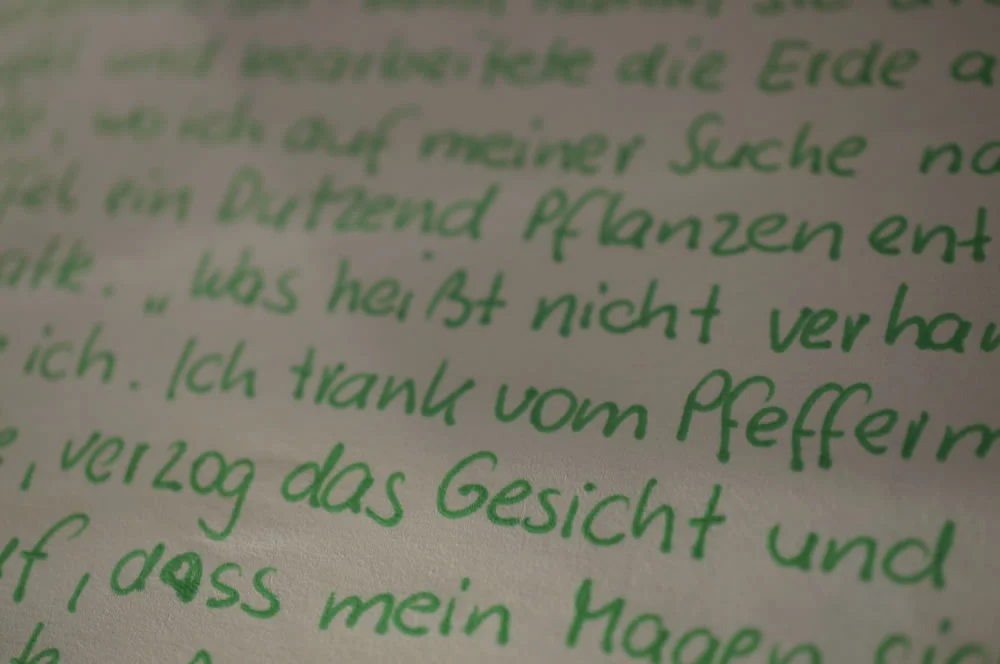 und bearbeitete die Erde a
, wo ich auf meiner Suche na
ffel ein Dutzend Pflanzen ent
atte. „Was heißt nicht verhan
ich. Ich trank vom Pfefferm
e, verzog das Gesicht und
uf, dass mein Magen sic